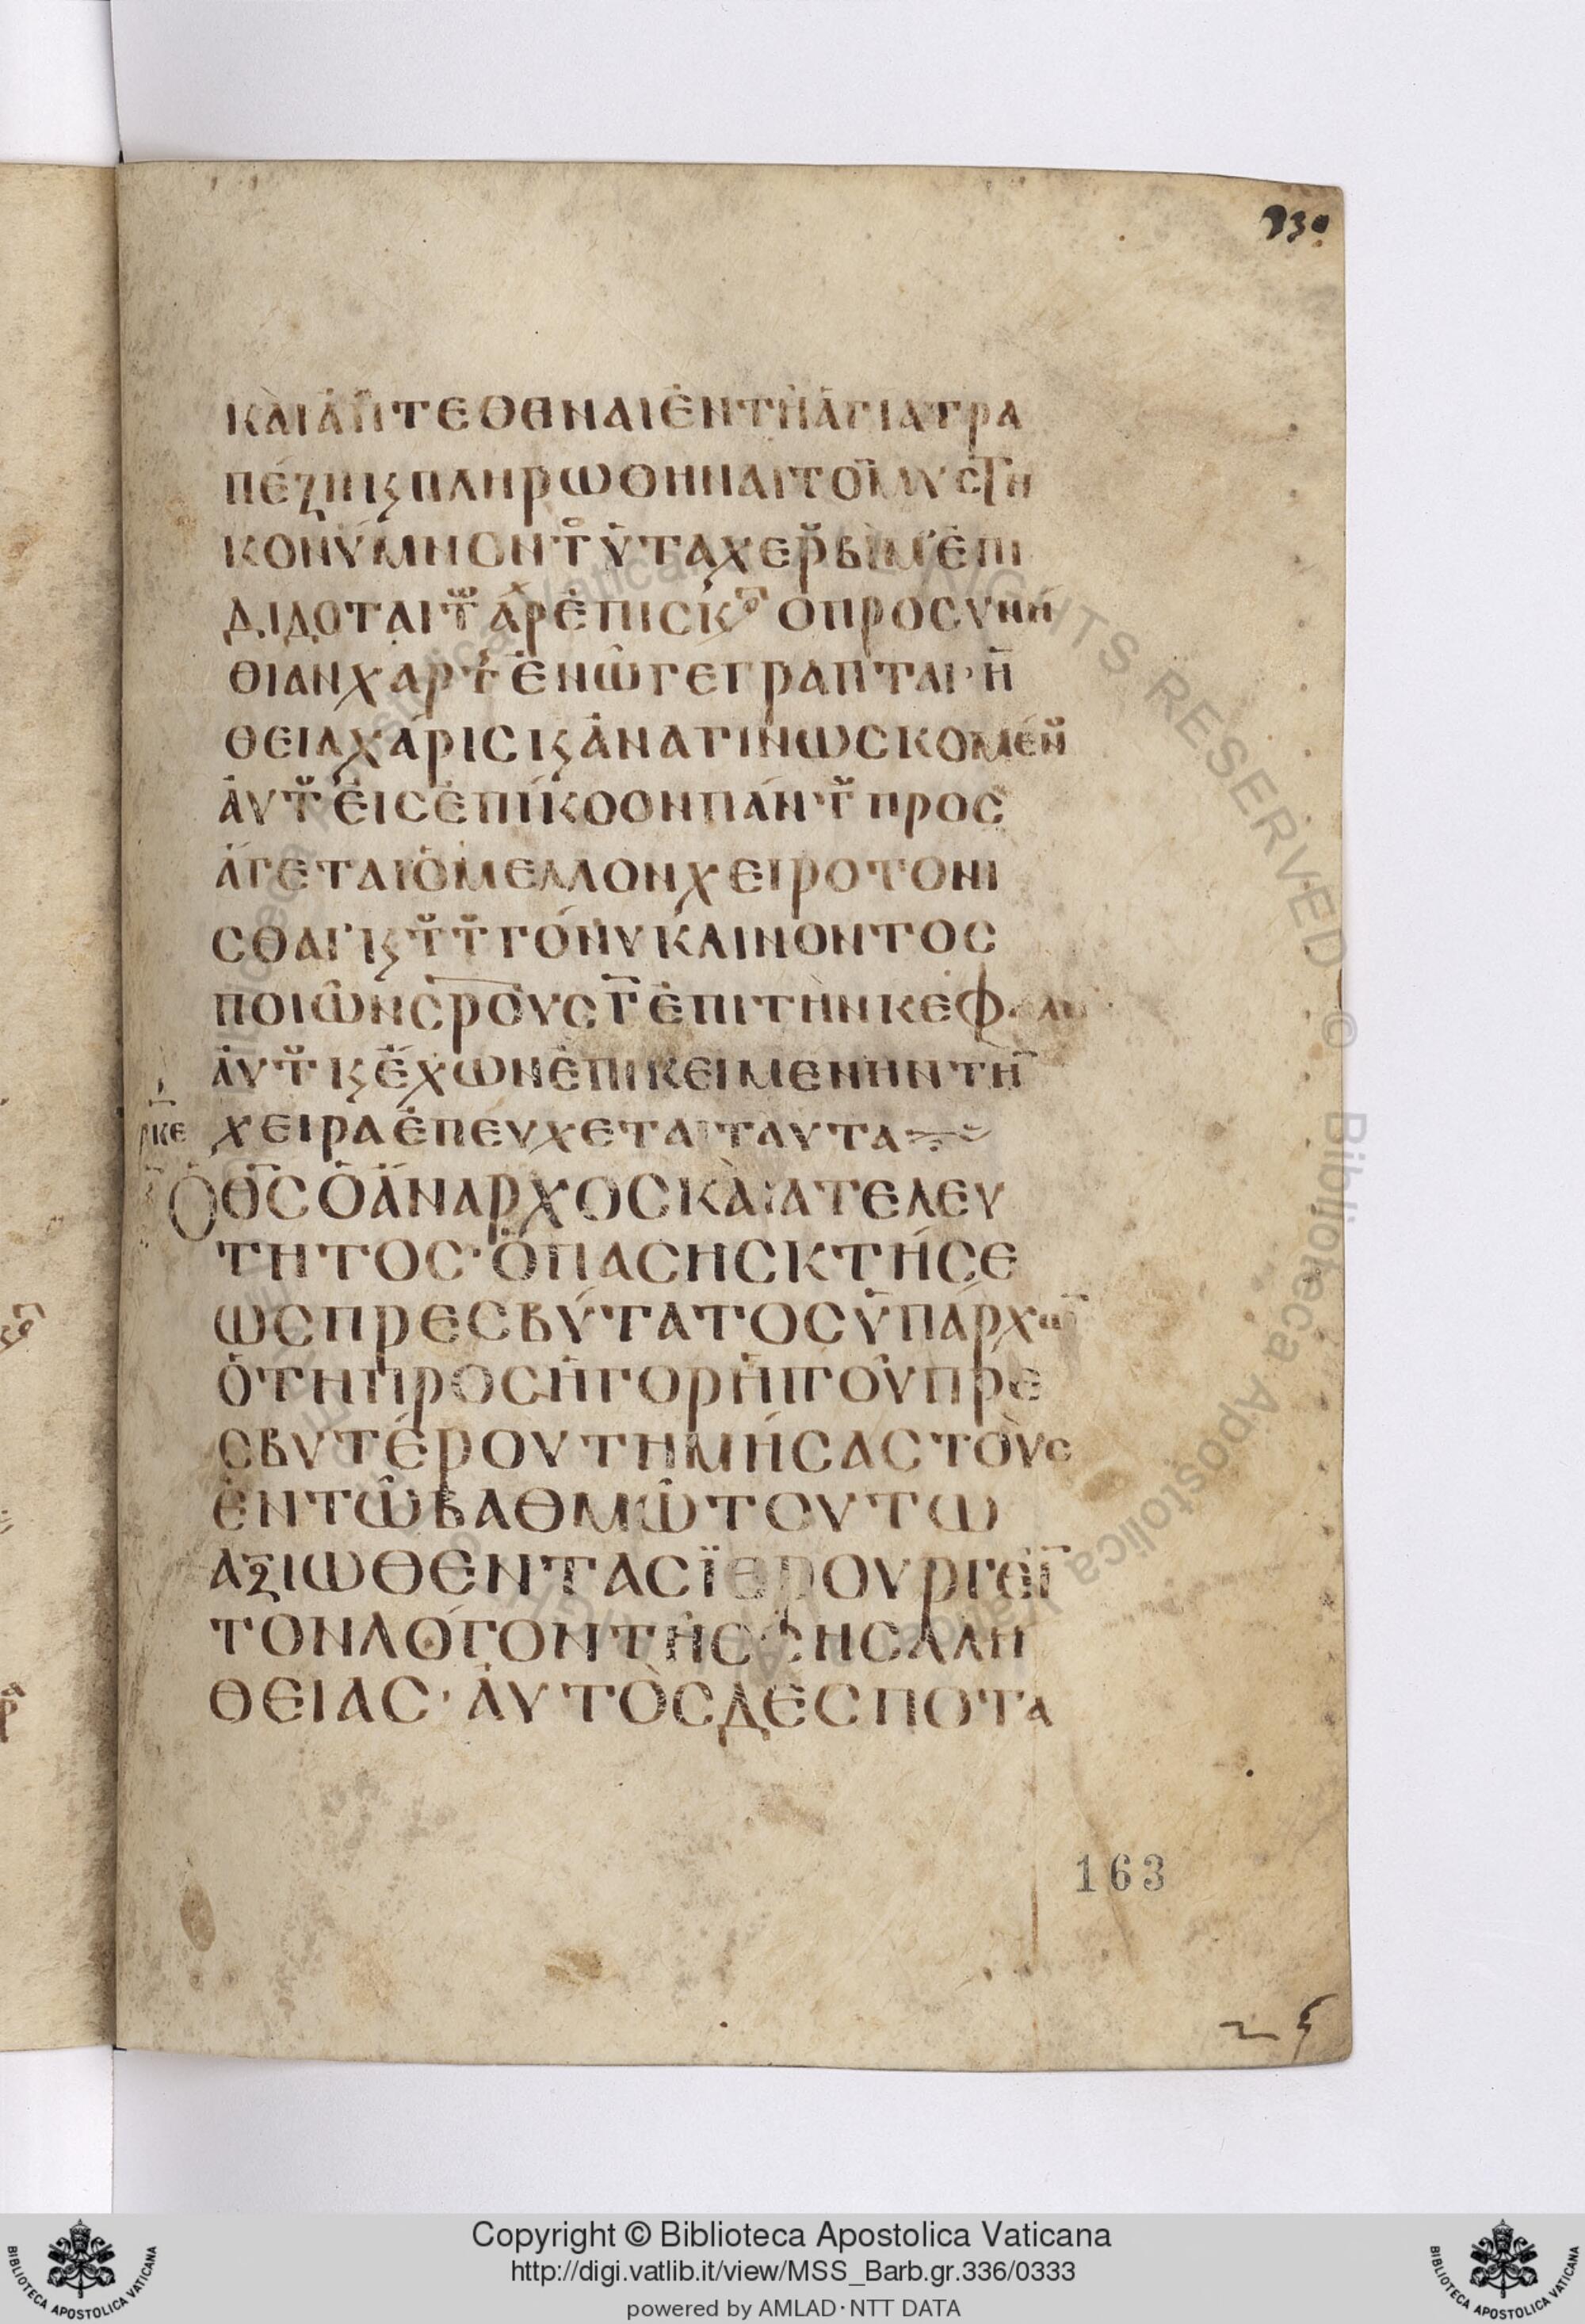 330
ΚΑΙΑΠΤΕΘΗΝΑΙΕΝΤΗΑΓΙΑΤΡΑ
ΠΕΖΗϗΠΛΗΡΩΘΗΝΑΙΤΟΜΥϹΤΗ
ΚΟΝΥΜΝΟΝΤΥΤΑΧΕΡΒΙΜΕΠΙ
ΔΙΔΟΤΑΙΤΑΡΕΠΙϹΚΟΠΡΟϹΥΝΗ
ΘΙΑΝΧΑΡΤΕΝΩΓΕΓΡΑΠΤΑΙ·Η
ΘΕΙΑΧΑΡΙϹϗΑΝΑΓΙΝΩϹΚΟΜΕΝ
ΑΥΤΕΙϹΕΠΙΚΟΟΝΠΑΝΤΠΡΟϹ
ΑΓΕΤΑΙΟΜΕΛΛΟΝΧΕΙΡΟΤΟΝΙ
ϹΘΑΙϗΤΤΓΟΝΥΚΛΙΝΟΝΤΟϹ
ΠΟΙΩΝϹΡΟΥϹΓΕΠΙΤΗΝΚΕΦΑΛΗ
ΑΥΤϗΕΧΩΝΕΠΙΚΕΙΜΕΝΗΝΤΗ
ΡΚΕ ΧΕΙΡΑΕΠΕΥΧΕΤΑΙΤΑΥΤΑ
ΟΘϹΟΑΝΑΡΧΟϹΚΑΙΑΤΕΛΕΥ
ΤΗΤΟϹ·ΟΠΑϹΗϹΚΤΗϹΕ
ΩϹΠΡΕϹΒΥΤΑΤΟϹΥΠΑΡΧΩ
ΟΤΗΠΡΟϹΗΓΟΡΗΙΤΟΥΠΡΕ
ϹΒΥΤΕΡΟΥΤΗΜΗϹΑϹΤΟΥϹ
ΕΝΤΩΒΑΘΜΩΤΟΥΤΩ
ΑΞΙΩΘΕΝΤΑϹΪΕΡΟΥΡΓΕΙ
ΤΟΝΛΟΓΟΝΤΗϹϹΗϹΑΛΗ
ΘΕΙΑϹ·ΑΥΤΟϹΔΕϹΠΟΤΑ
163
Copyright © Biblioteca Apostolica Vaticana
http://digi.vatlib.it/view/MSS_Barb.gr.336/0333
powered by AMLAD·NTT DATA
BIBLIOTECA APOSTOLICA VATICANA
BIBLIOTECA APOSTOLICA VATICANA